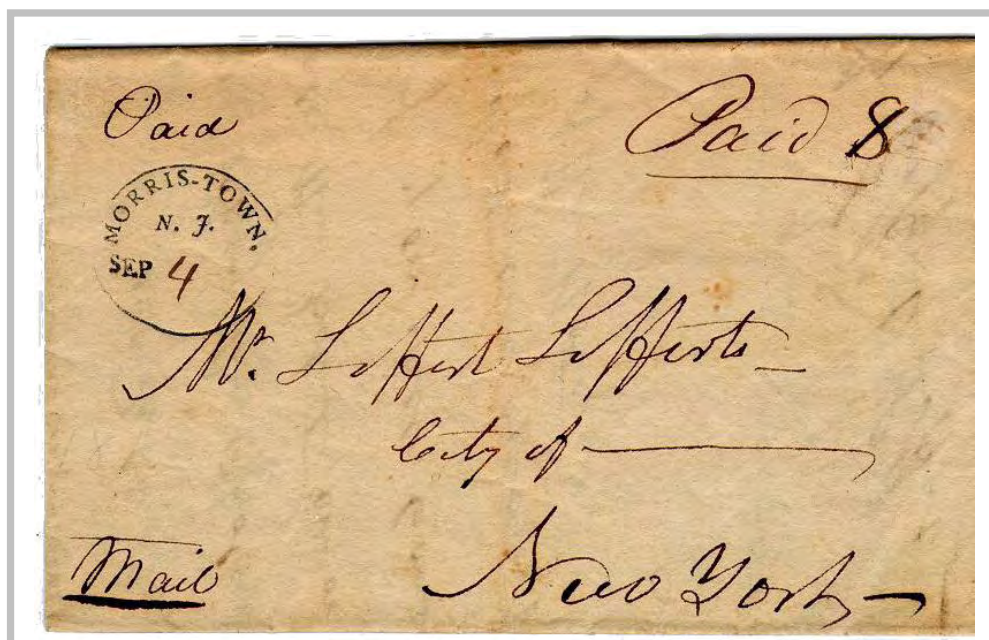 Paid
Paid 8
MORRIS-TOWN,
N. J.
SEP 4
Mr. Leffert Lefferts
City of
New York
Mail